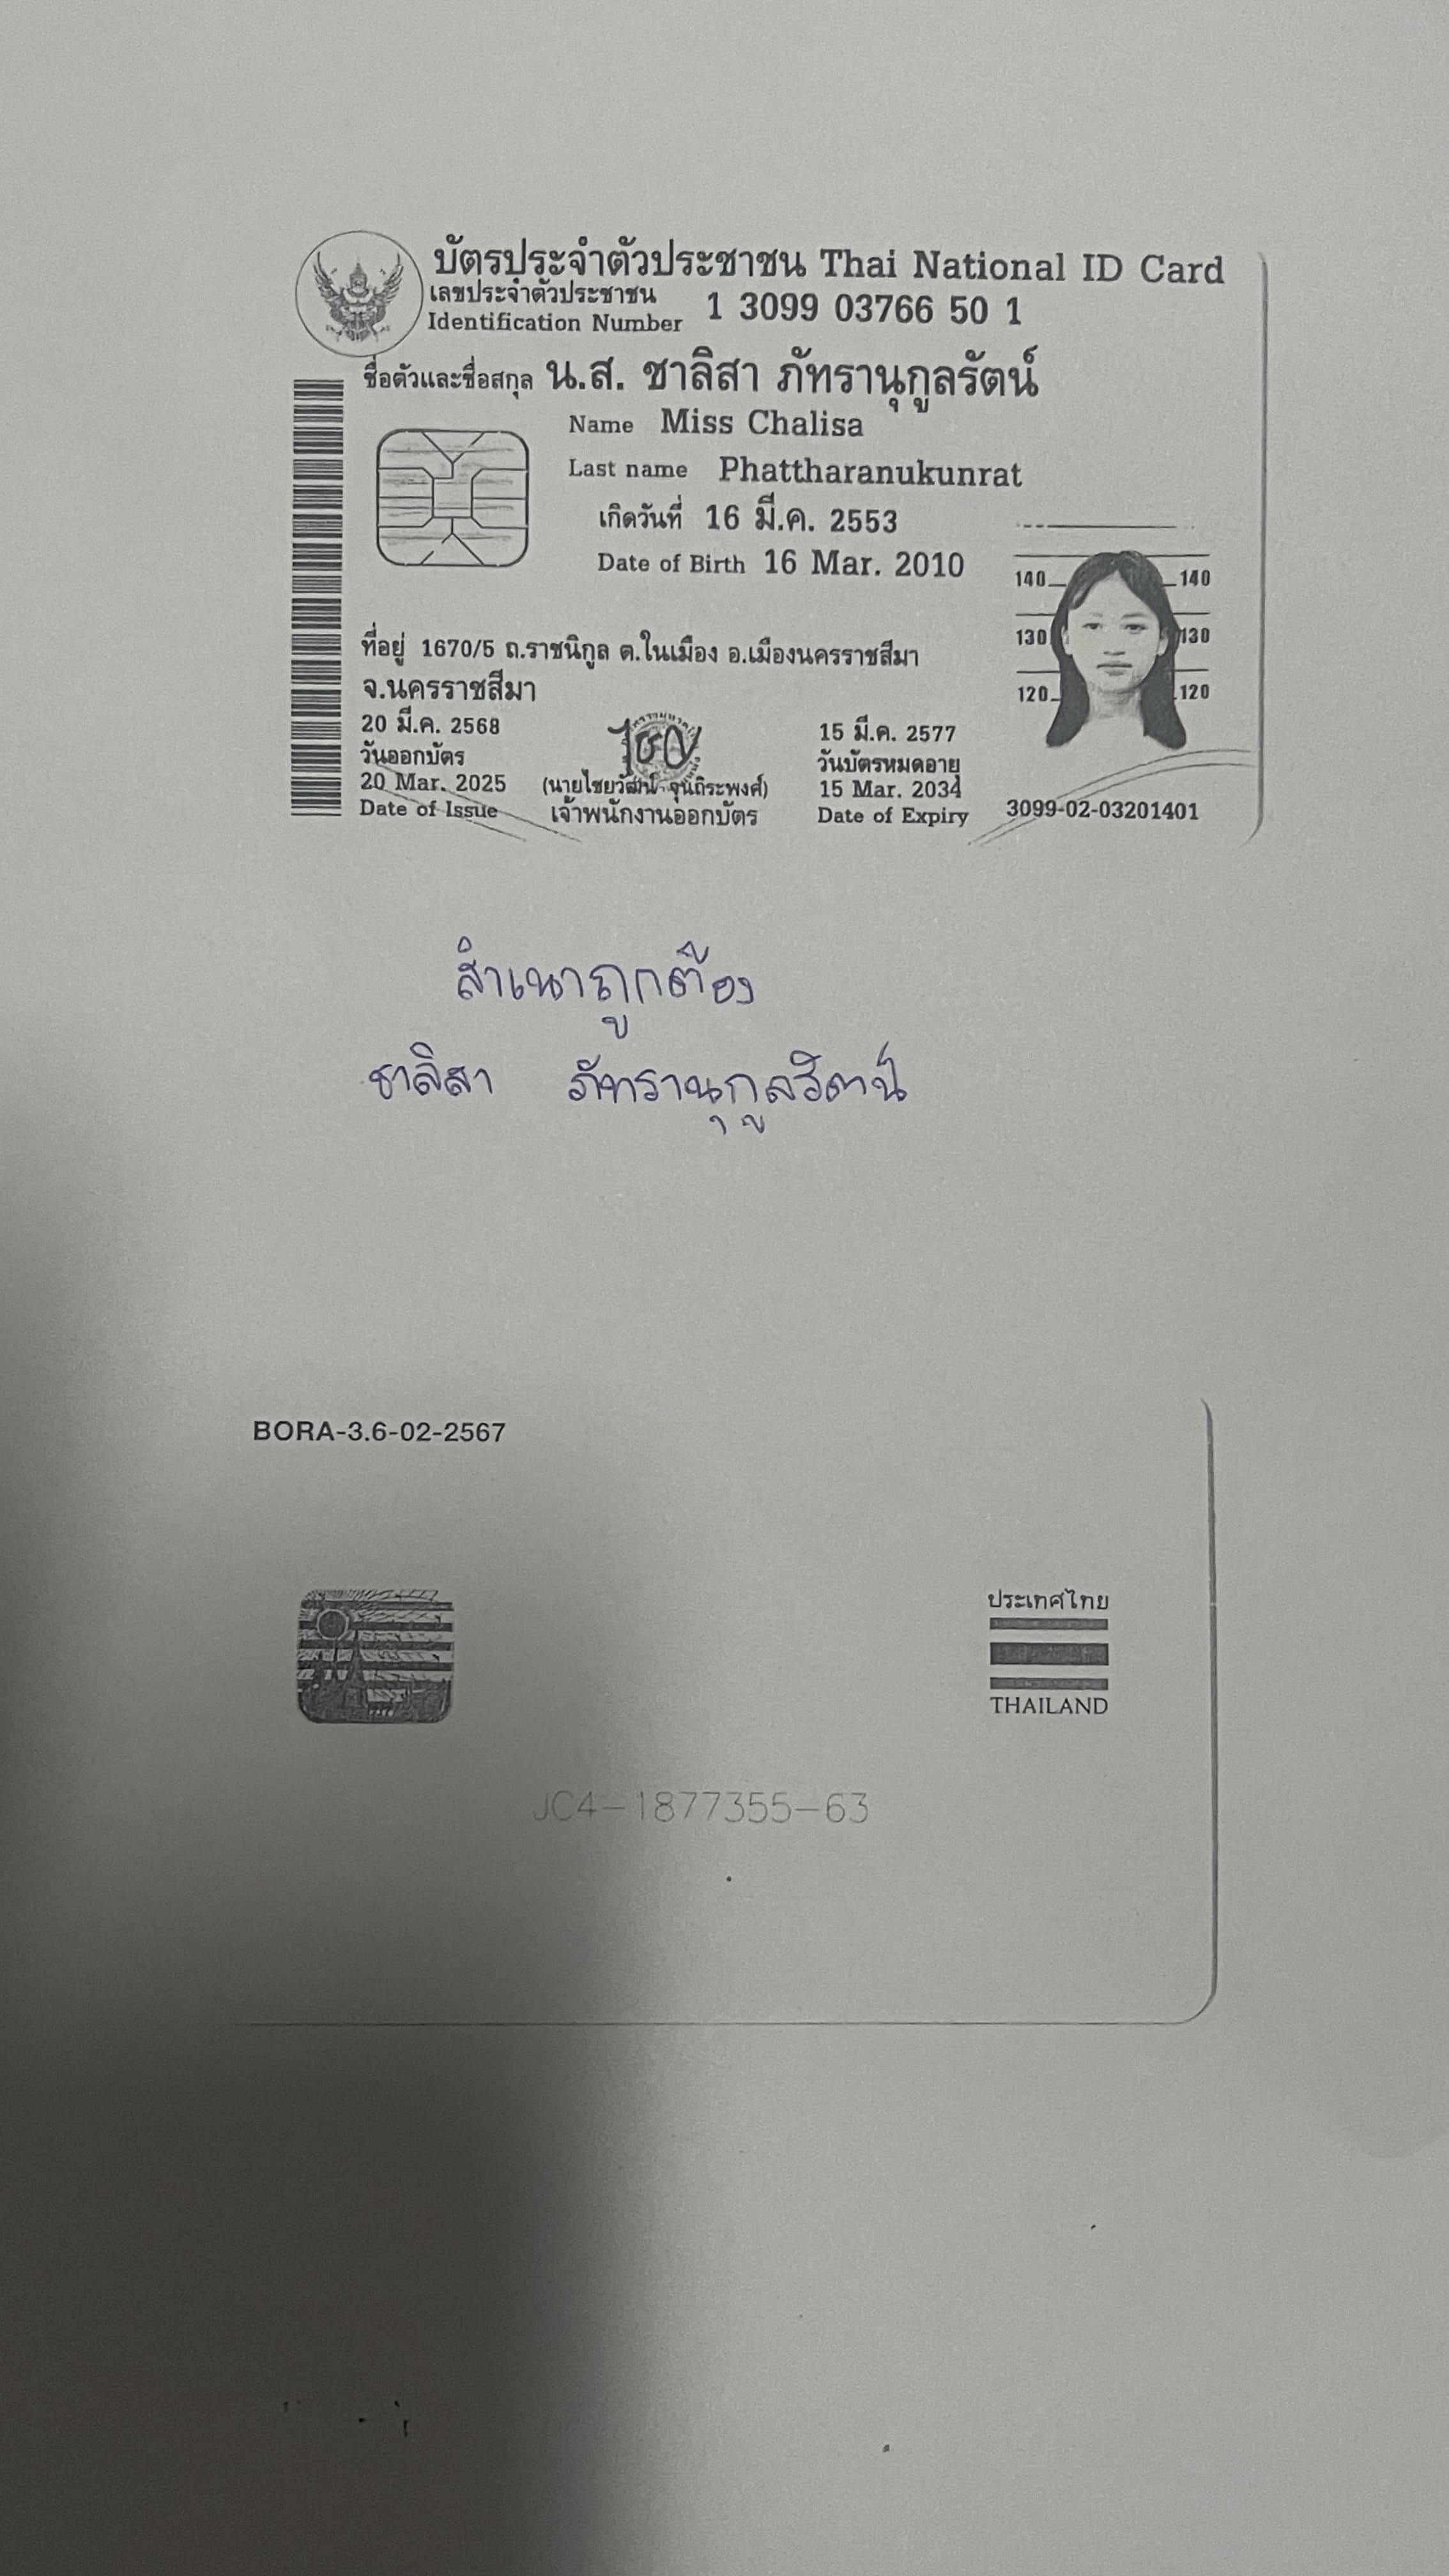 บัตรประจำตัวประชาชน Thai National ID Card
เลขประจำตัวประชาชน
Identification Number 1 3099 03766 50 1
ชื่อตัวและชื่อสกุล น.ส. ชาลิสา ภัทรานุกูลรัตน์
Name Miss Chalisa
Last name Phattharanukunrat
เกิดวันที่ 16 มี.ค. 2553
Date of Birth 16 Mar. 2010
140 140
130 130
120 120
ที่อยู่ 1670/5 ถ.ราชนิกูล ต.ในเมือง อ.เมืองนครราชสีมา
จ.นครราชสีมา
20 มี.ค. 2568
วันออกบัตร
20 Mar. 2025
Date of Issue
(นายไชยวัฒน์ จุนถิระพงศ์)
เจ้าพนักงานออกบัตร
15 มี.ค. 2577
วันบัตรหมดอายุ
15 Mar. 2034
Date of Expiry
3099-02-03201401
สำเนาถูกต้อง
ชาลิสา ภัทรานุกูลรัตน์
BORA-3.6-02-2567
ประเทศไทย
THAILAND
JC4-1877355-63